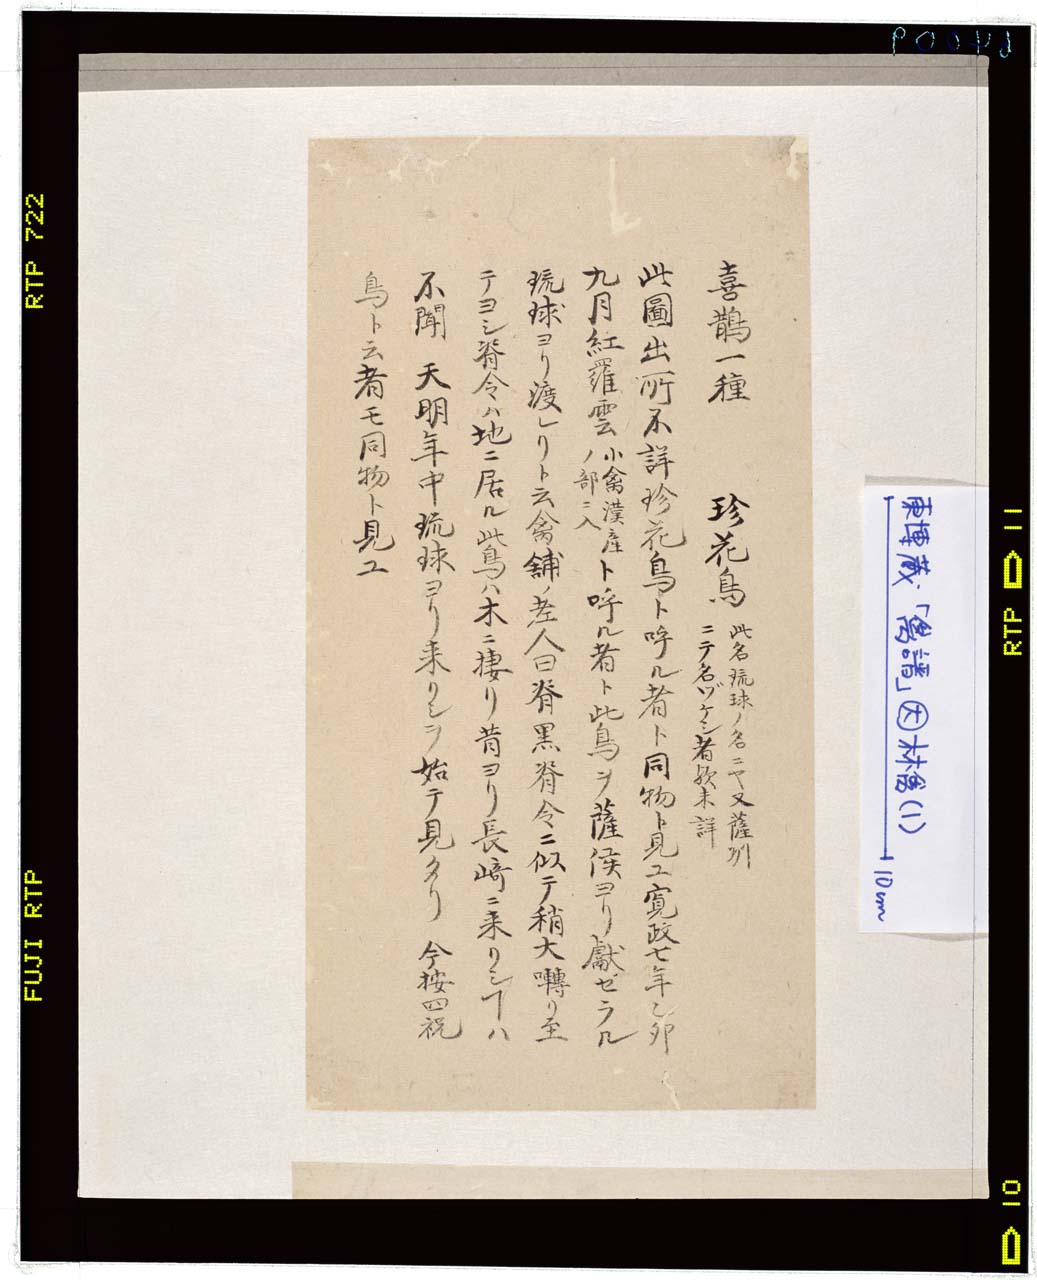 喜鵲一種　珍花鳥　此名琉球ノ名ニヤ又薩州
ニテ名ヅケシ者歟未詳
此圖出所不詳珍花鳥ト呼ル者ト同物ト見ユ寛政七年乙卯
九月紅羅雲　小禽漢産
ノ部ニ入　ト呼ル者ト此鳥ヲ薩侯ヨリ獻ゼラル
琉球ヨリ渡レリト云禽舗ノ老人曰脊黒脊令ニ似テ稍大囀リ至
テヨシ脊令ハ地ニ居ル此鳥ハ木ニ棲リ昔ヨリ長崎ニ来リシヿハ
不聞　天明年中琉球ヨリ来リシヲ始テ見タリ　今按四祝
鳥ト云者モ同物ト見ユ
東博蔵「鳥譜」大林舎(1)
10cm
RTP 722
FUJI RTP
RTP 11
10